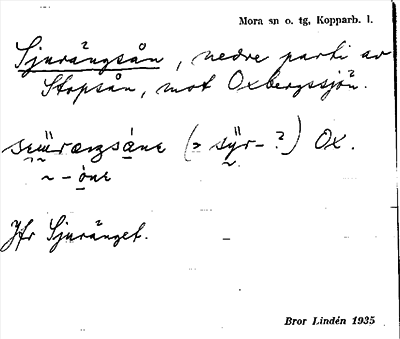 Mora sn o. tg, Kopparb. l.
Sjurängsån, nedre parti av
Stopsån, mot Oxbergssjön.
(> syr-?) Ox.
~ - óne
Jfr Sjuränget.
Bror Lindén 1935